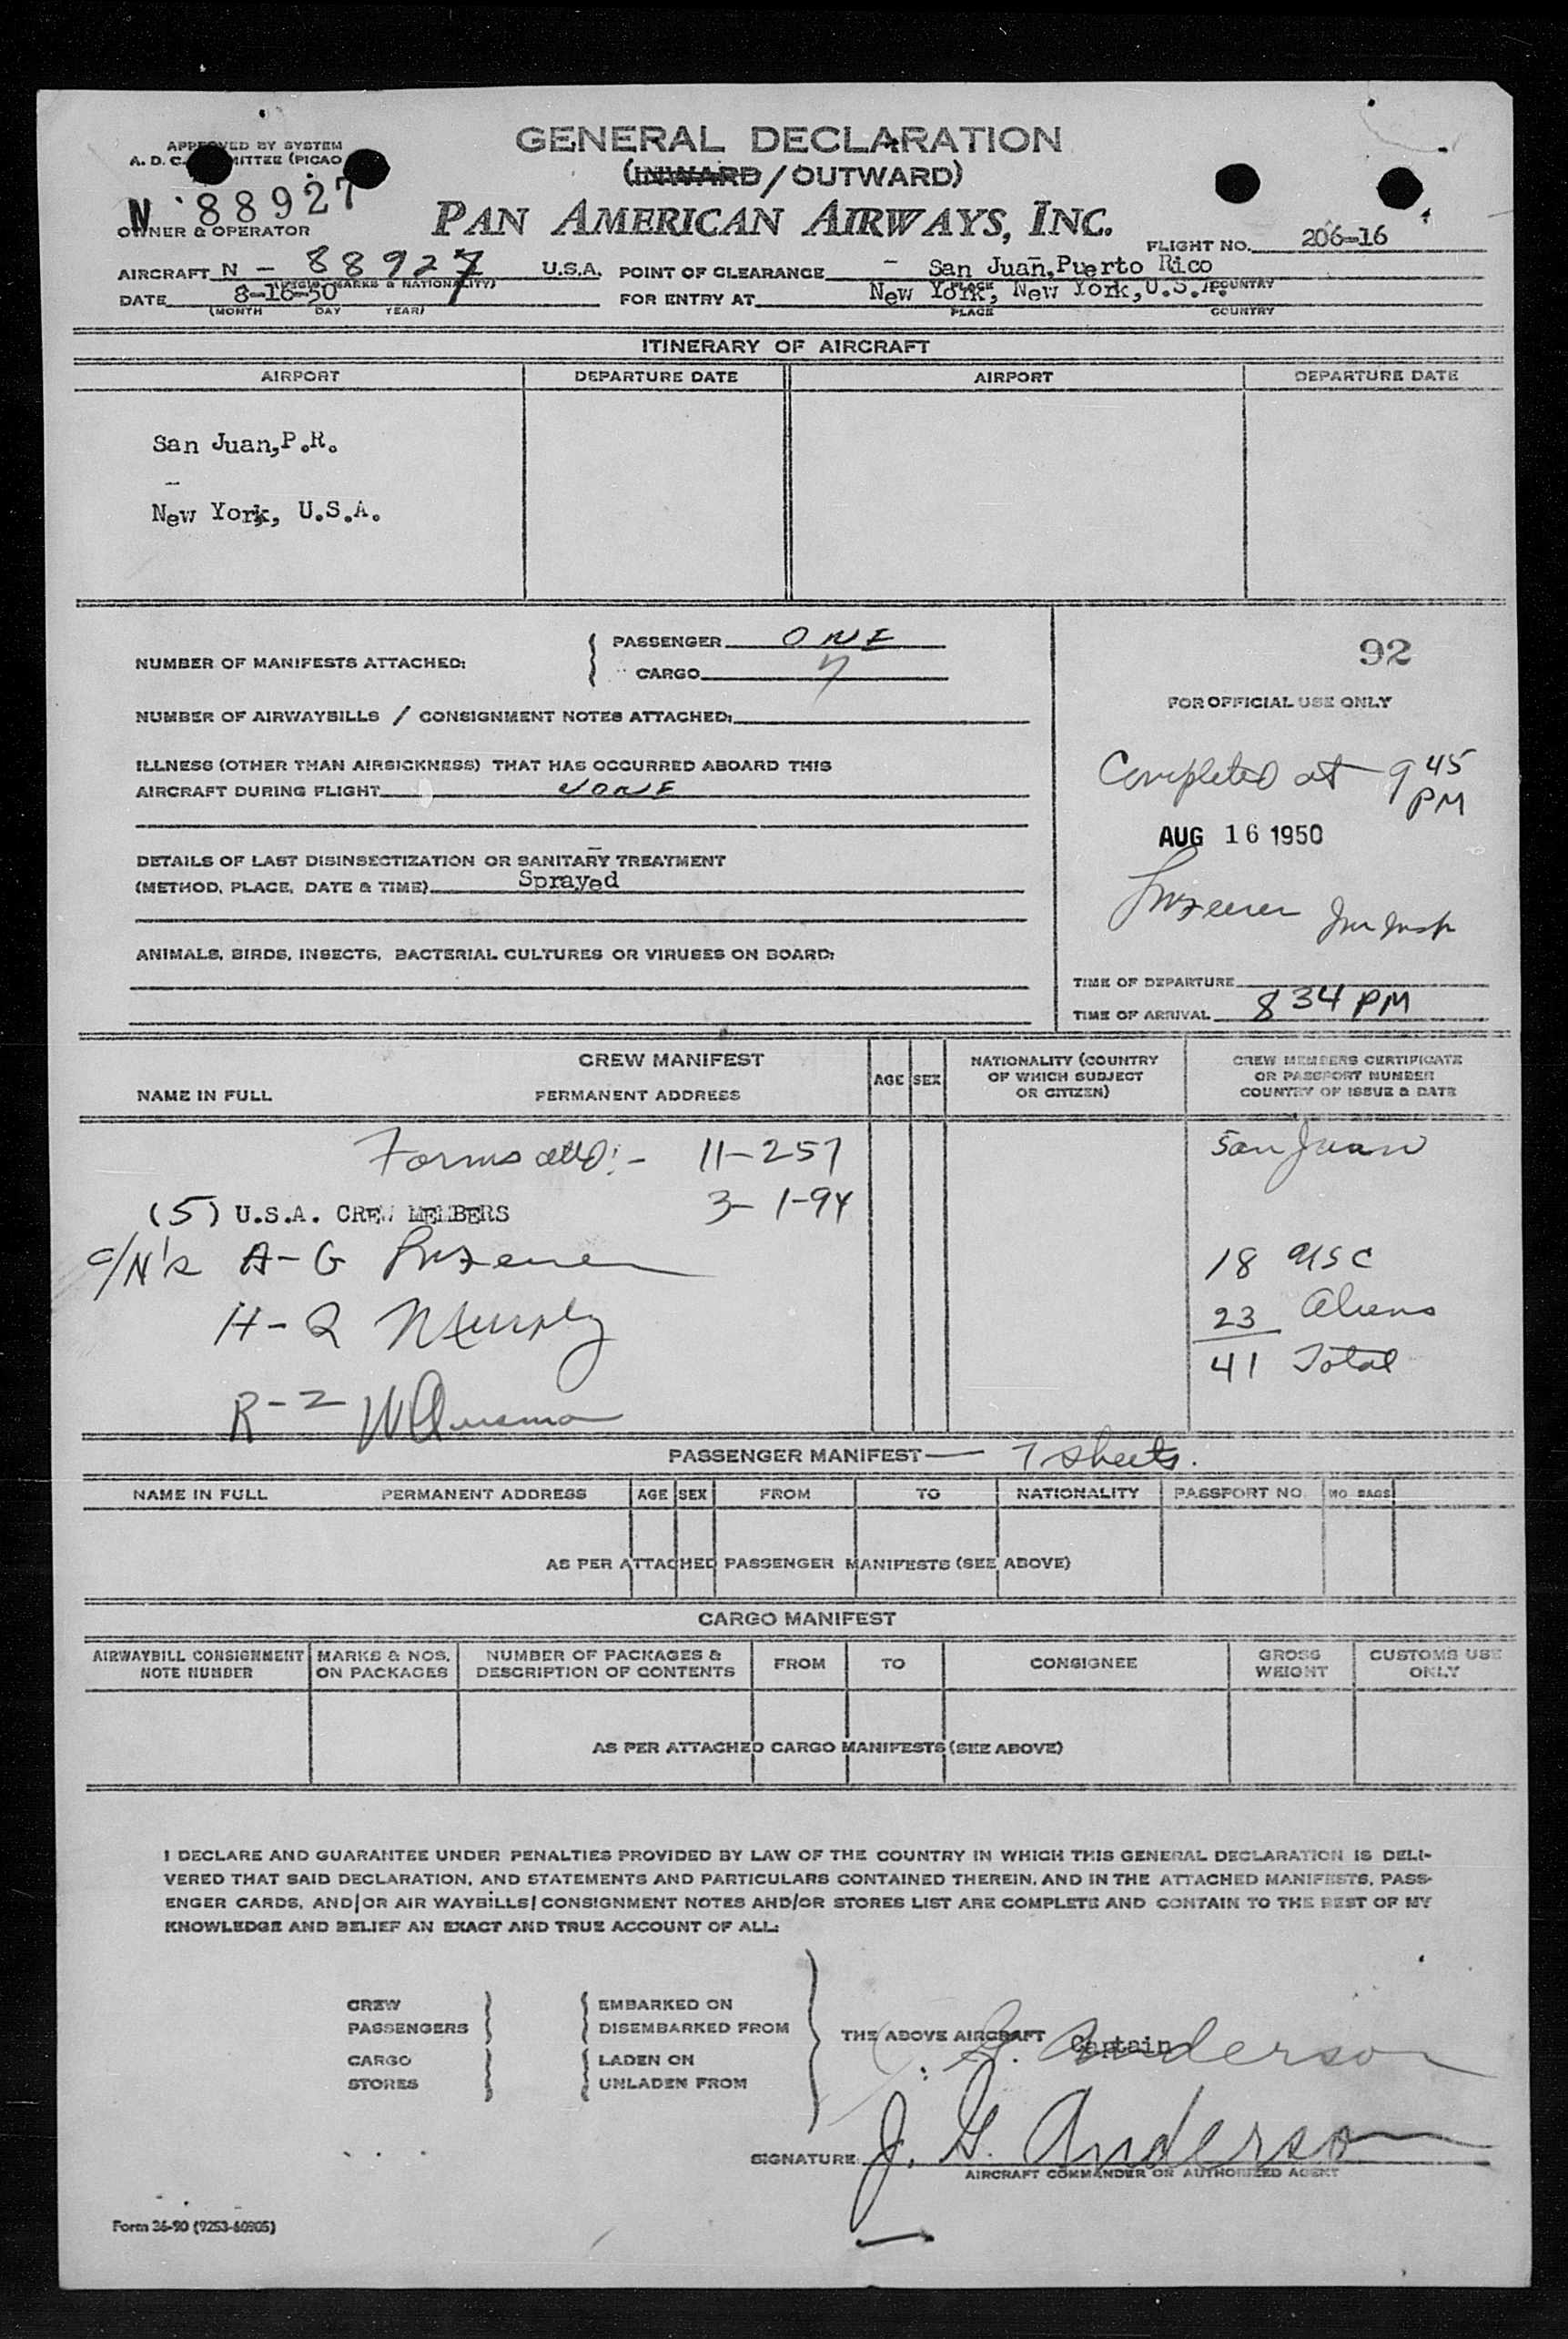 APPROVED BY SYSTEM
A. D. C. COMMITTEE (PICAO
N 88927
OWNER & OPERATOR
GENERAL DECLARATION
(INWARD/OUTWARD)
PAN AMERICAN AIRWAYS, INC.
FLIGHT NO. 206-16
AIRCRAFT N - 88927 U.S.A.
(REGIS. MARKS & NATIONALITY)
POINT OF CLEARANCE San Juan, Puerto Rico
PLACE COUNTRY
DATE 8-16-50
(MONTH DAY YEAR)
FOR ENTRY AT New York, New York, U.S.A.
PLACE COUNTRY
ITINERARY OF AIRCRAFT
AIRPORT DEPARTURE DATE AIRPORT DEPARTURE DATE
San Juan, P.R.
-
New York, U.S.A.
NUMBER OF MANIFESTS ATTACHED:
PASSENGER ONE
CARGO 7
NUMBER OF AIRWAYBILLS / CONSIGNMENT NOTES ATTACHED:
ILLNESS (OTHER THAN AIRSICKNESS) THAT HAS OCCURRED ABOARD THIS
AIRCRAFT DURING FLIGHT NONE
DETAILS OF LAST DISINSECTIZATION OR SANITARY TREATMENT
(METHOD, PLACE, DATE & TIME) Sprayed
ANIMALS, BIRDS, INSECTS, BACTERIAL CULTURES OR VIRUSES ON BOARD:
92
FOR OFFICIAL USE ONLY
Completed at 9 45 PM
AUG 16 1950
Imm Insp
TIME OF DEPARTURE
TIME OF ARRIVAL 8 34 PM
CREW MANIFEST
NAME IN FULL PERMANENT ADDRESS
AGE SEX
NATIONALITY (COUNTRY
OF WHICH SUBJECT
OR CITIZEN)
CREW MEMBERS CERTIFICATE
OR PASSPORT NUMBER
COUNTRY OF ISSUE & DATE
Forms attd:- 11-257
San Juan
3- 1-94
(5) U.S.A. CREW MEMBERS
c/N's A-G
18 USC
H-Q Murphy
23 Aliens
41 Total
R-Z
PASSENGER MANIFEST — 7 sheets.
NAME IN FULL PERMANENT ADDRESS AGE SEX FROM TO NATIONALITY PASSPORT NO. NO BAGS
AS PER ATTACHED PASSENGER MANIFESTS (SEE ABOVE)
CARGO MANIFEST
AIRWAYBILL CONSIGNMENT
NOTE NUMBER
MARKS & NOS.
ON PACKAGES
NUMBER OF PACKAGES &
DESCRIPTION OF CONTENTS
FROM TO CONSIGNEE
GROSS
WEIGHT
CUSTOMS USE
ONLY
AS PER ATTACHED CARGO MANIFESTS (SEE ABOVE)
I DECLARE AND GUARANTEE UNDER PENALTIES PROVIDED BY LAW OF THE COUNTRY IN WHICH THIS GENERAL DECLARATION IS DELI-
VERED THAT SAID DECLARATION, AND STATEMENTS AND PARTICULARS CONTAINED THEREIN, AND IN THE ATTACHED MANIFESTS, PASS-
ENGER CARDS, AND/OR AIR WAYBILLS/CONSIGNMENT NOTES AND/OR STORES LIST ARE COMPLETE AND CONTAIN TO THE BEST OF MY
KNOWLEDGE AND BELIEF AN EXACT AND TRUE ACCOUNT OF ALL:
CREW
PASSENGERS
CARGO
STORES
EMBARKED ON
DISEMBARKED FROM
LADEN ON
UNLADEN FROM
THE ABOVE AIRCRAFT Captain
J. G. Anderson
SIGNATURE J. G. Anderson
AIRCRAFT COMMANDER OR AUTHORIZED AGENT
Form 36-90 (9253-60905)